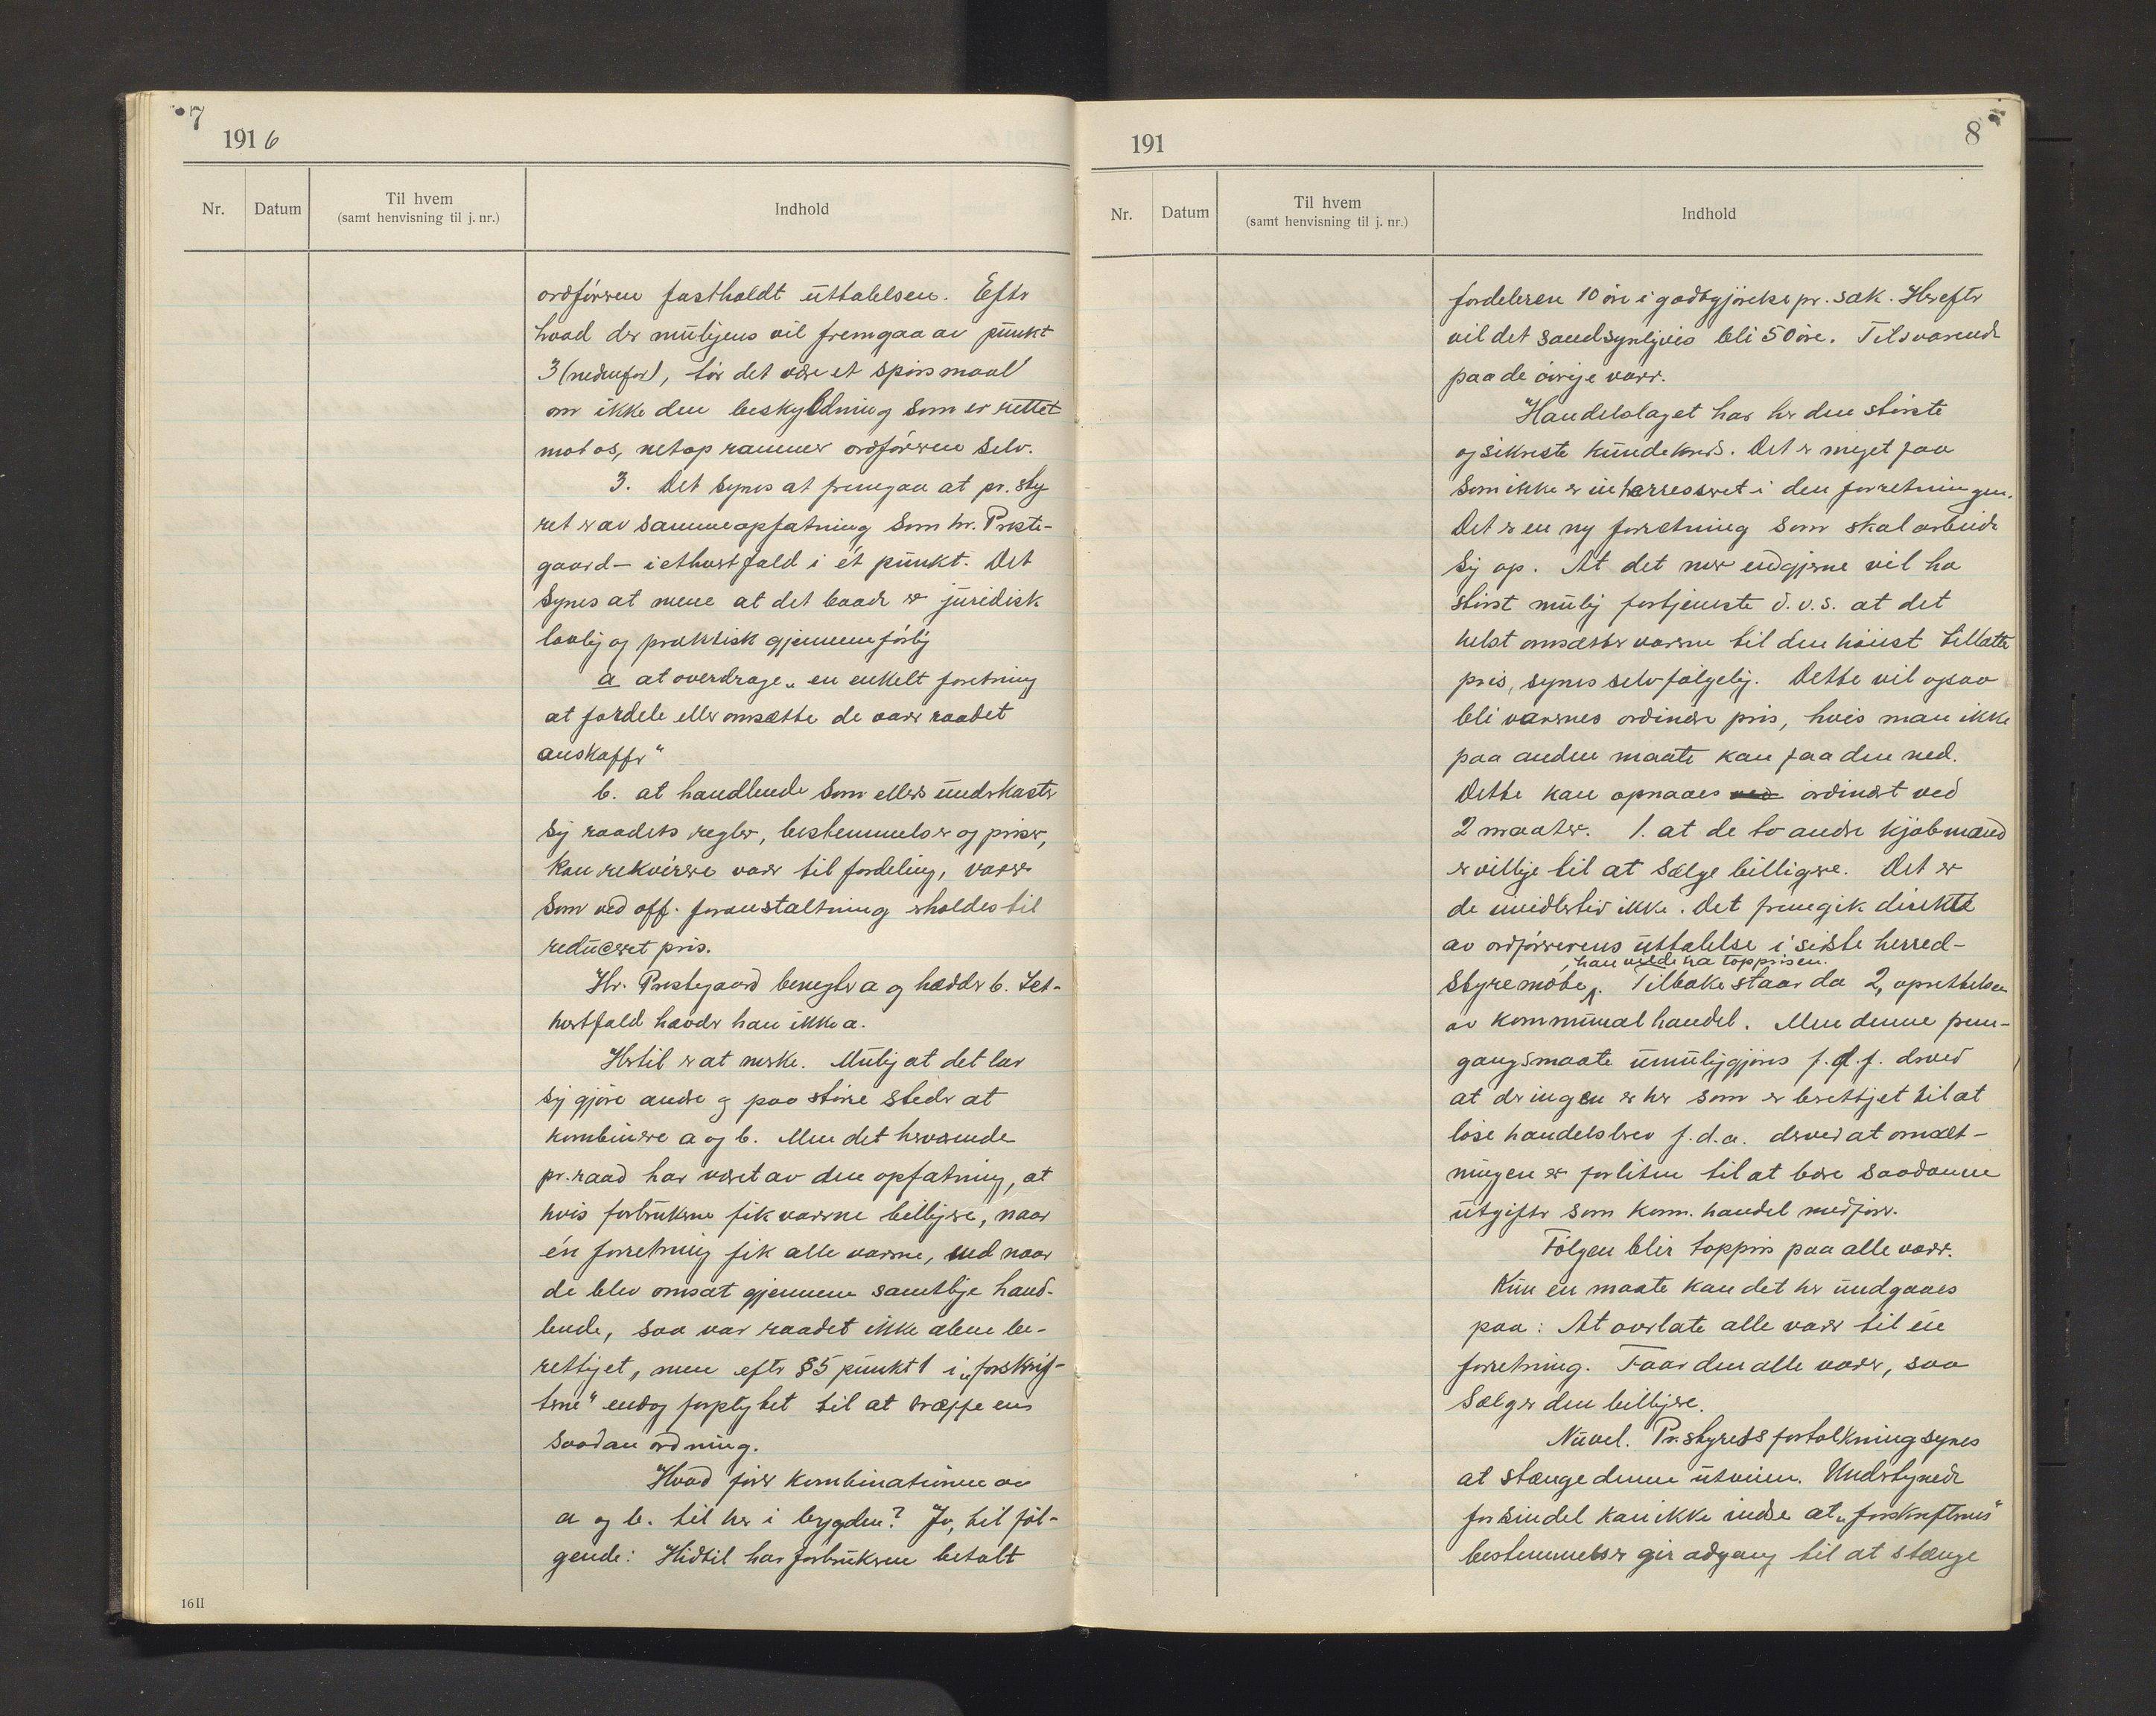 7
1916
Nr.
Datum
Til hvem
(samt henvisning til j. nr.)
Indhold
ordføreren fastholdt uttalelsen. Efter
hvad der muligens vil fremgaa av punkt
3 (nedenfor), tør det være et spørsmaal
om ikke den beskyldning som er rettet
mot os, netop rammer ordføreren selv.
3. Det synes at fremgaa at pr. sty
ret er av samme opfatning som hr. Preste-
gaard – i ethvert fald i ét punkt. Det
synes at mene at det baade er juridisk
lovlig og praktisk gjennemførlig
a at overdrage „en enkelt foretning
at fordele eller omsætte de varer raadet
anskaffer"
b. at handlende som ellers underkaster
sig raadets regler, bestemmelser og priser,
kan rekvirere varer til fordeling, varer
som ved off. foranstaltning erholdes til
reduceret pris.
Hr. Prestegaard benegter a og hævder b. Iet-
hvertfald hævder han ikke a.
Hertil er at merke. Mulig at det lar
sig gjøre andre og paa større steder at
kombinere a og b. Men det herværende
pr. raad har været av den opfatning, at
hvis forbrukerne fik varerne billigere, naar
én forretning fik alle varerne, end naar
de blev omsat gjennem samtlige hand-
lende, saa var raadet ikke alene be-
rettiget, men efter § 5 punkt 1 i „forskrif-
terne" endog forpligtet til at træffe en
saadan ordning.
Hvad fører kombinationen av
a og b. til her i bygden? Jo, til føl-
gende: Hidtil har forbrukerne betalt
16II
191
8
Nr.
Datum
Til hvem
(samt henvisning til j. nr.)
Indhold
fordeleren 10 øre i godtgjørelse pr. sæk. Herefter
vil det sandsynligvis bli 50 øre. Tilsvarende
paa de øvrige varer.
Handelslaget har her den største
og sikreste kundekreds. Det er meget faa
som ikke er interresseret i den forretningen.
Det er en ny forretning som skal arbeide
sig op. At det nu endgjerne vil ha
størst mulig fortjeneste d.v.s. at det
helst omsætter varerne til den høiest tillatte
pris, synes selvfølgelig. Dette vil ogsaa
bli varernes ordinære pris, hvis man ikke
paa anden maate kan faa den ned.
Dette kan opnaaes ved ordinært ved
2 maater. 1. at de to andre kjøbmænd
er villige til at sælge billigere. Det er
de imidlertid ikke. Det fremgik direkte
av ordførerens uttalelse i siste herred-
, han vilde ha topprisen.
styremøte. Tilbake staar da 2, oprettelsen
av kommunal handel. Men denne frem-
gangsmaate umuliggjøres f.d.f. derved
at der ingen er her som er berettiget til at
løse handelsbrev f.d.a. derved at omsæt-
ningen er for liten til at bære saadanne
utgifter som kom. handel medfører.
Følgen blir toppris paa alle varer.
Kun en maate kan det her undgaaes
paa: At overlate alle varer til én
forretning. Faar den alle varer, saa
sælger den billigere.
Nuvel. Pr. styrets fortolkning synes
at stænge denne utveien. Understyrede
for sin del kan ikke indse at „forskrifternes"
bestemmelser gir adgang til at stænge